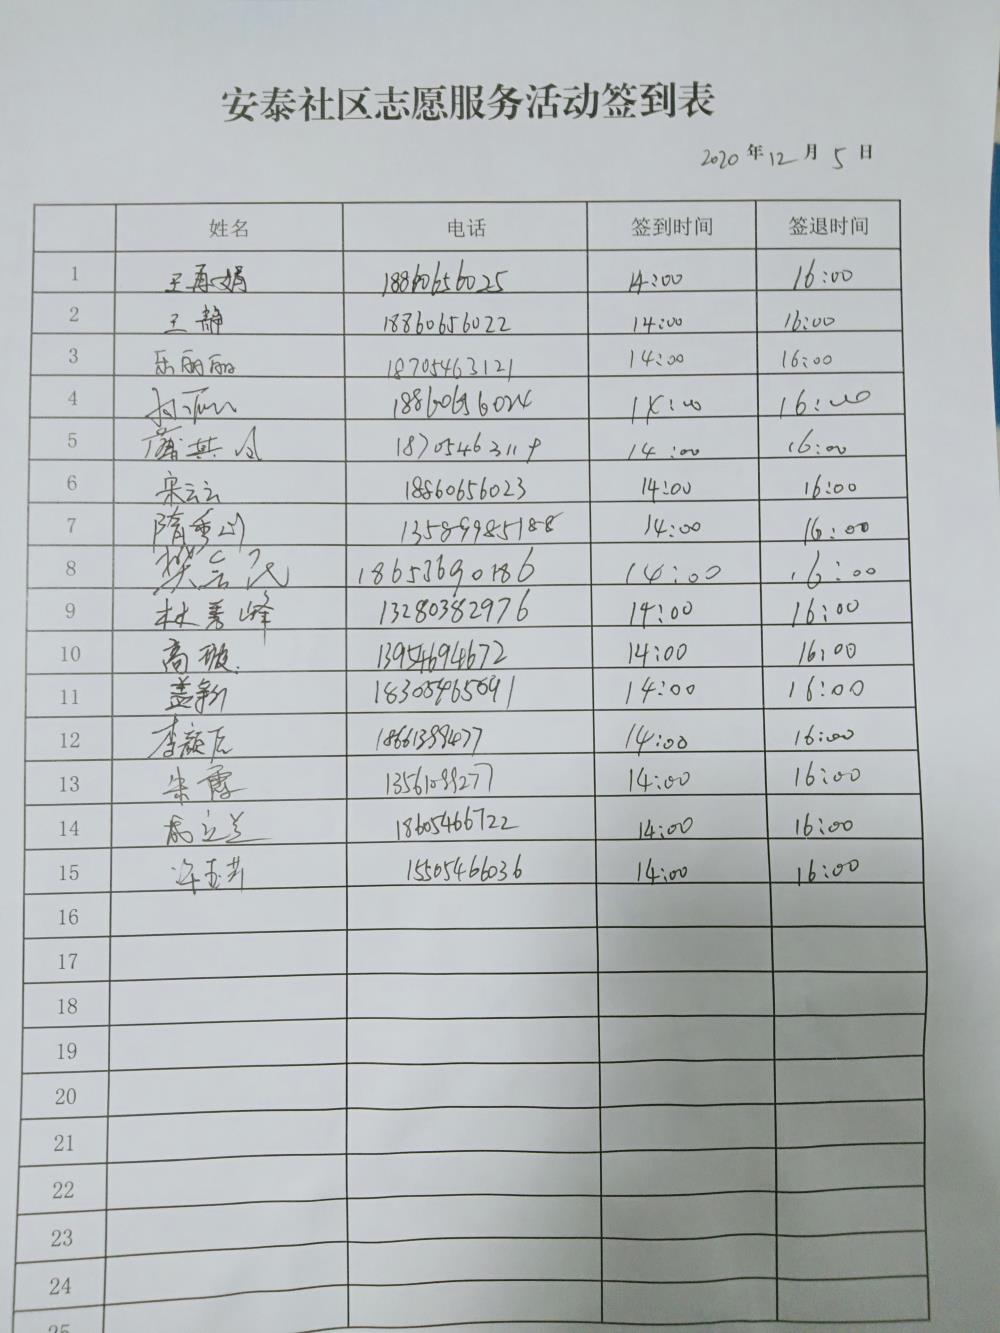 安泰社区志愿服务活动签到表
2020 年 12 月 5 日
姓名 电话 签到时间 签退时间
1 王再娟 18860656025 14:00 16:00
2 王静 18860656022 14:00 16:00
3 乐丽丽 18705463121 14:00 16:00
4 18860656024 14:00 16:00
5 14:00 16:00
6 宋云云 18860656023 14:00 16:00
7 隋秀 13589985188 14:00 16:00
8 18653690186 14:00 16:00
9 林秀峰 13280382976 14:00 16:00
10 高璇 13954694672 14:00 16:00
11 盖新 18305465691 14:00 16:00
12 李颜 18661399477 14:00 16:00
13 朱霞 14:00 16:00
14 18605466722 14:00 16:00
15 许玉芳 15505466036 14:00 16:00
16
17
18
19
20
21
22
23
24
25